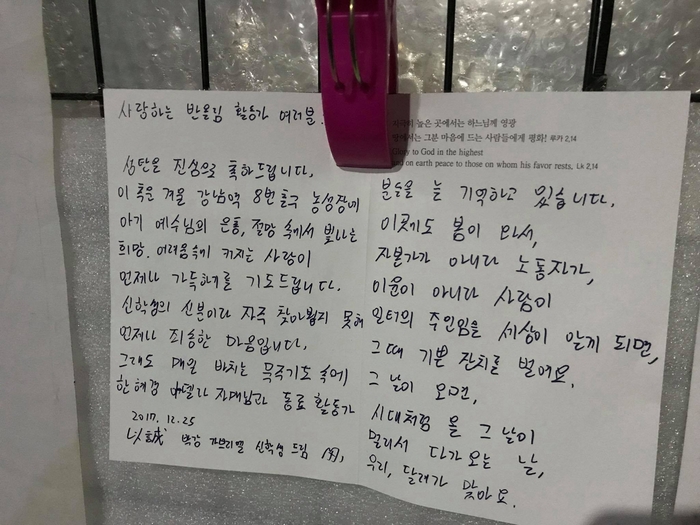 사랑하는 반올림 활동가 여러분.
성탄을 진심으로 축하드립니다.
이 추운 겨울 강남역 8번출구 농성장에
아기 예수님의 은총, 절망 속에서 빛나는
희망. 어려움속에 커지는 사랑이
언제나 가득하기를 기도드립니다.
신학생의 신분이라 자주 찾아뵙지 못해
언제나 죄송한 마음입니다.
그래도 매일 바치는 묵주기도 속에
한혜경 자매님과 동료 활동가
2017. 12. 25
以誠 박강 가브리엘 신학생 드림
높은 곳에서는 하느님께 영광
땅에서는 그분 마음에 드는 사람들에게 평화! 루카 2,14
Glory to God in the highest
and on earth peace to those on whom his favor rests. Lk 2,14
분들을 늘 기억하고 있습니다.
이곳에도 봄이 와서,
자본가가 아니라 노동자가,
이윤이 아니라 사람이
일터의 주인임을 세상이 알게 되면,
그때 기쁜 잔치를 벌여요.
그 날이 오면,
시대처럼 올 그 날이
멀리서 다가오는 날,
우리, 달려가 맞아요.